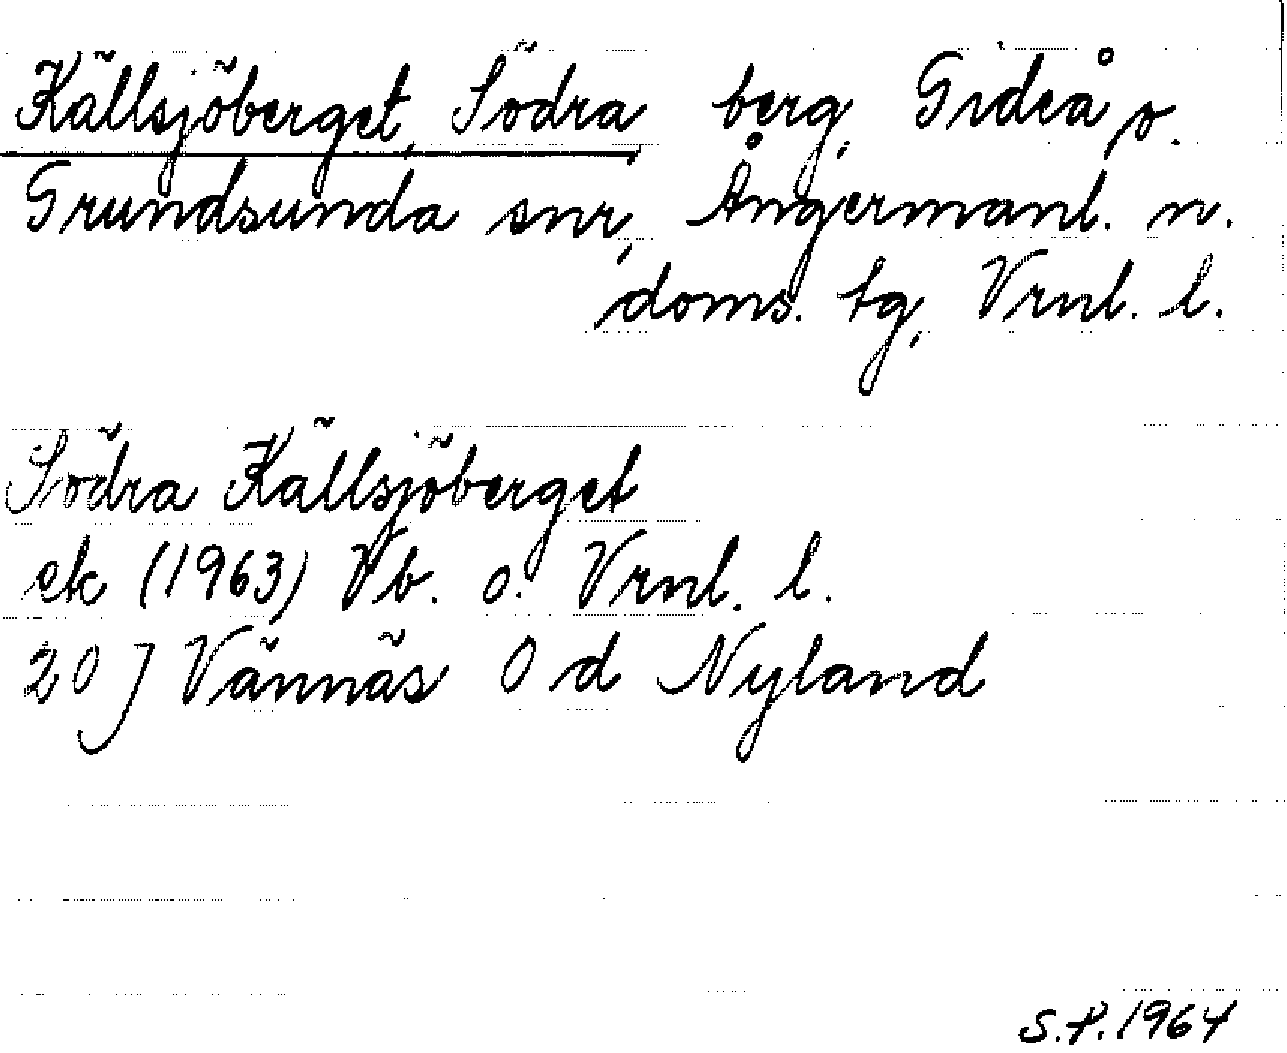 Källsjöberget, Södra berg, Gideå o.
Grundsunda snr, Ångermanl. n.
doms. tg, Vrnl. l.
Södra Källsjöberget
ek (1963) Vb. o. Vrnl. l.
20 J Vännäs 0 d Nyland
S.P. 1964